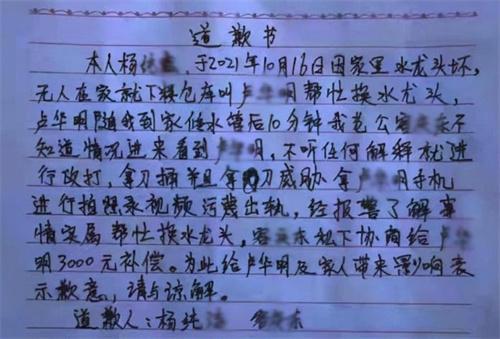 道歉书
本人杨 ,于2021年10月16日因家里水龙头坏,
无人在家就下 车库叫 明帮忙换水龙头,
卢华明随我到家修水管后10分钟我老公 不
知道情况进来看到 明,不听任何解释就进
行攻打,拿刀捅并且拿 刀威胁拿 明手机
进行拍照录视频污蔑出轨,经报警了解事
情实属帮忙换水龙头, 东私下协商给
明3000元补偿。为此给卢华明及家人带来 影响表
示歉意,请与谅解。
道歉人:杨纯 东